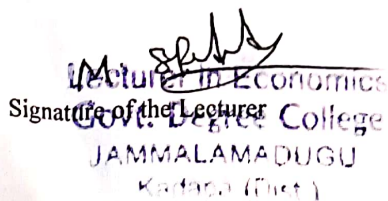 Lecturer in Economics
Signature of the Lecturer
Govt. Degree College
JAMMALAMADUGU
Kadapa (Dist.)